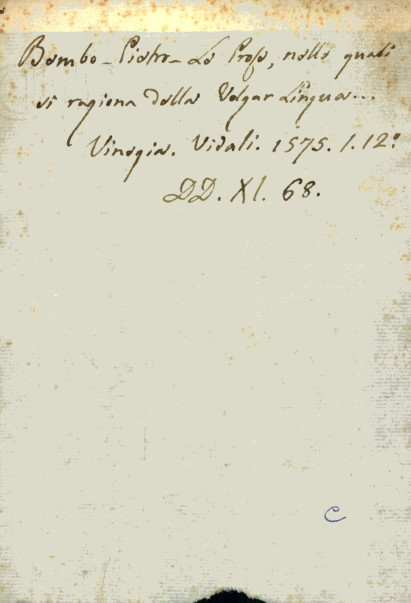 Bembo - Pietro - Le Prose, nelle quali
si ragiona della Volgar Lingua...
Vinegia. Vidali. 1575. 1. 12.º
DD. XI. 68.
C